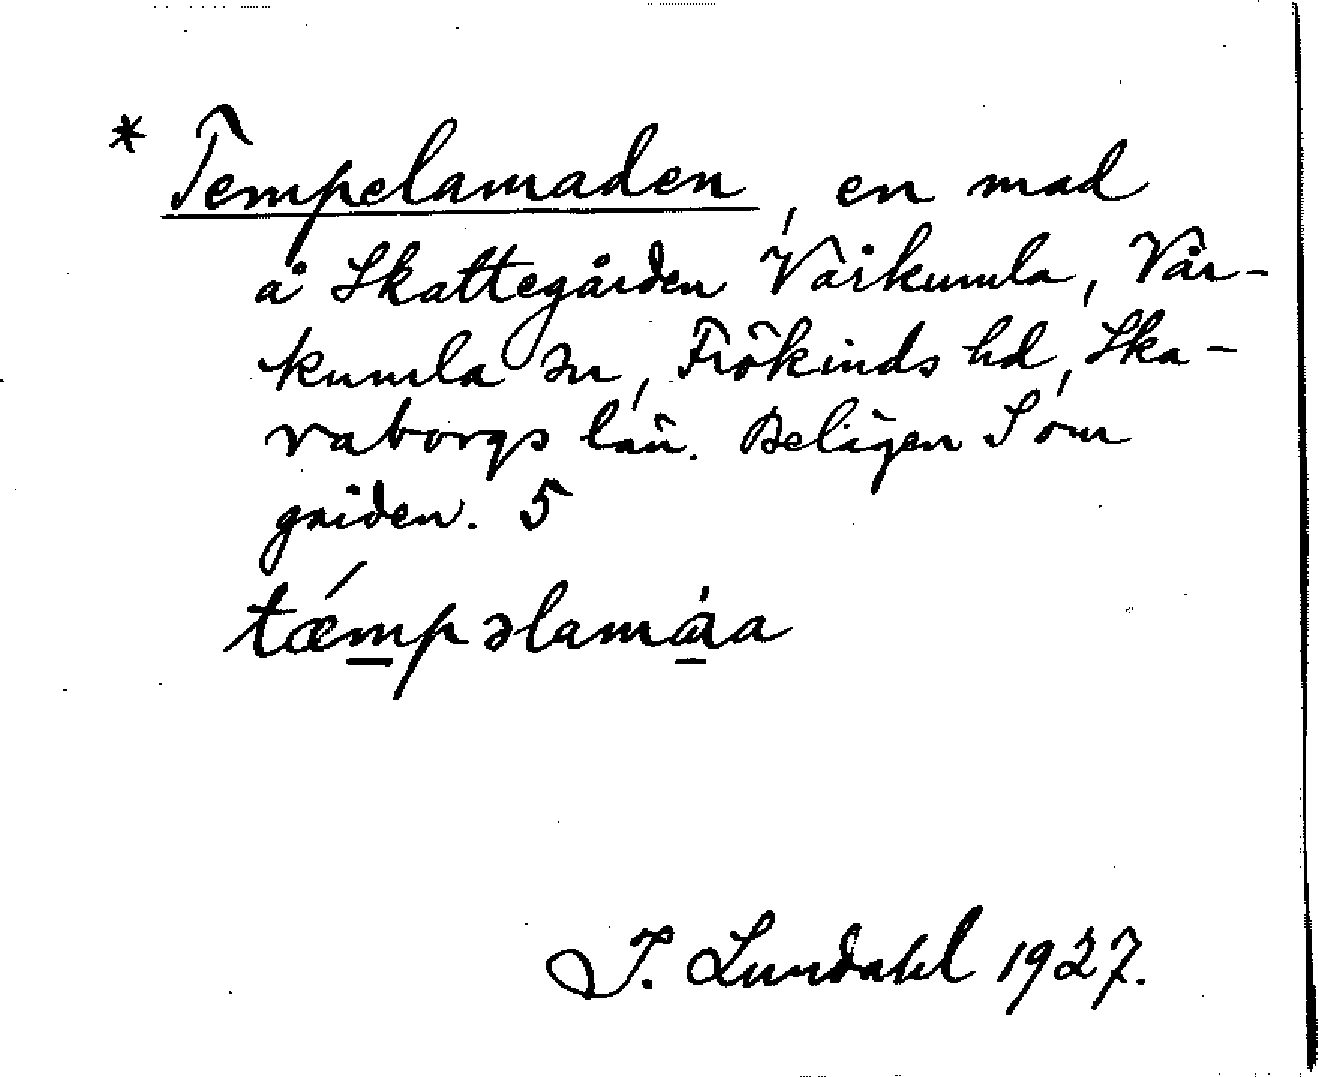 * Tempelamaden, en mad
å Skattegården Vårkumla, Vår-
kumla sn, Frökinds hd, Ska-
raborgs län. Belägen S om
gården. 5
tǽmpəlamáa
I. Lundahl 1927.